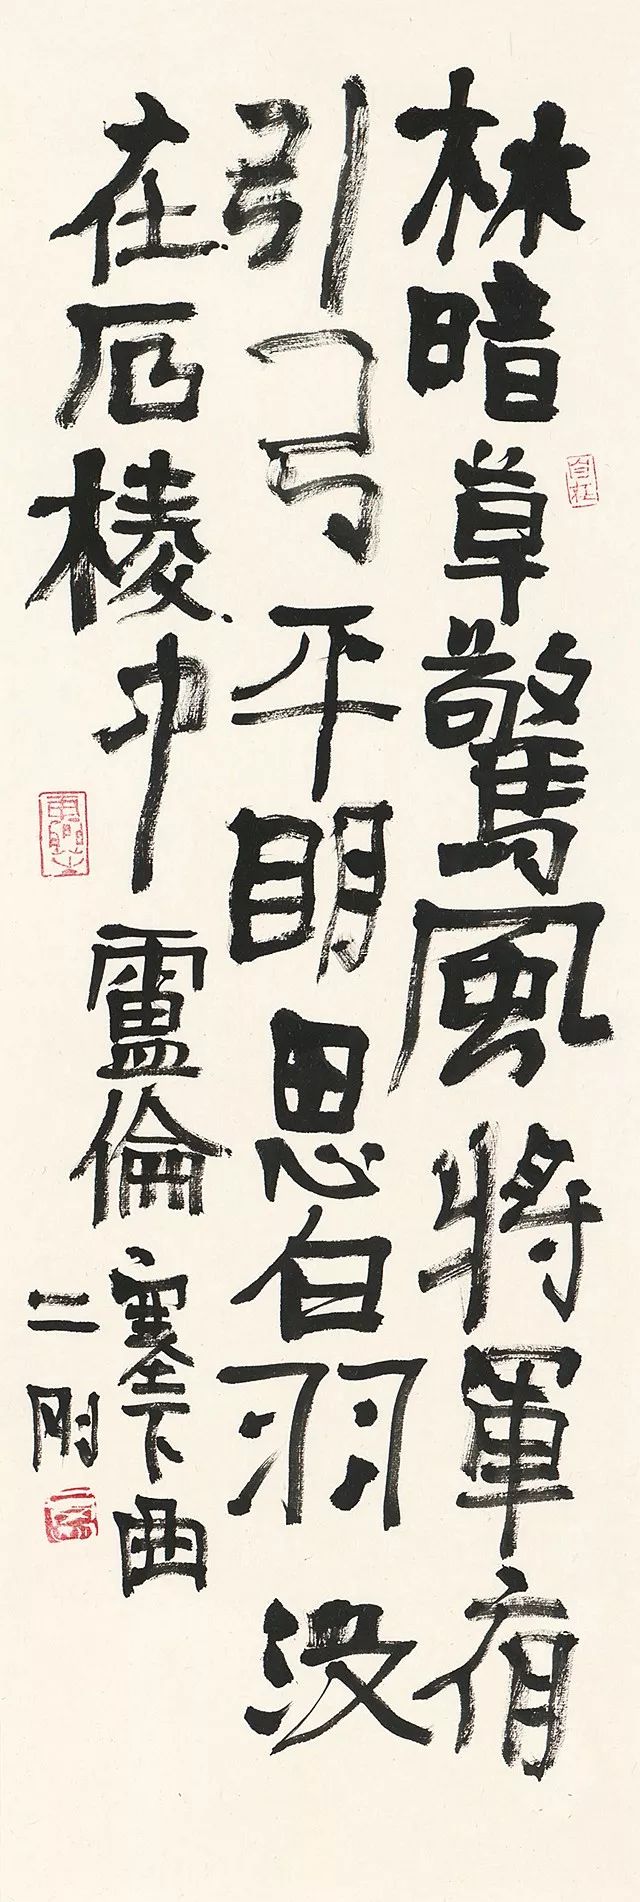 林暗草驚風將軍夜
引弓平明思白羽沒
在石棱中盧倫塞下曲
二刚